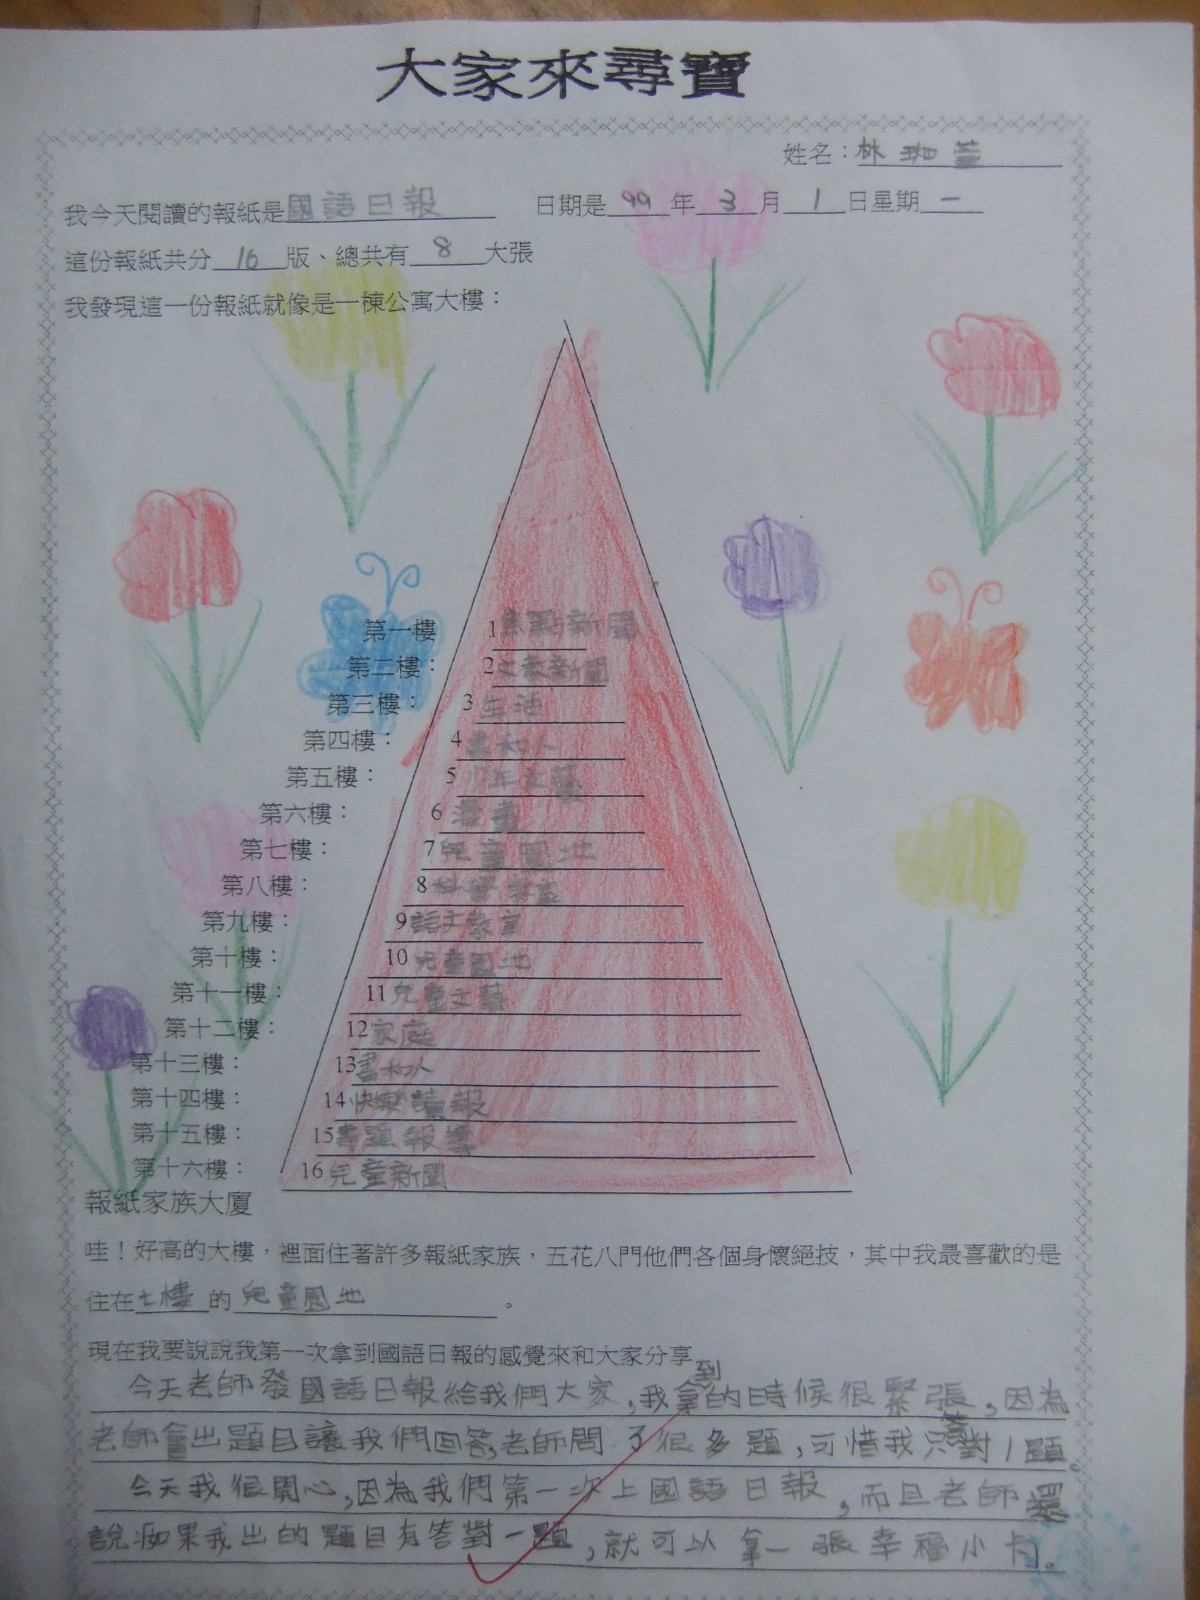 大家來尋寶
姓名：林珈萱
我今天閱讀的報紙是國語日報 日期是99年3月1日星期一
這份報紙共分16版、總共有8大張
我發現這一份報紙就像是一棟公寓大樓：
第一樓 1焦點新聞
第二樓： 2文教新聞
第三樓： 3生活
第四樓： 4書和人
第五樓： 5少年文藝
第六樓： 6漫畫
第七樓： 7兒童園地
第八樓： 8科學教室
第九樓： 9語文教室
第十樓： 10兒童園地
第十一樓： 11兒童文藝
第十二樓： 12家庭
第十三樓： 13書和人
第十四樓： 14快樂讀報
第十五樓： 15專題報導
第十六樓： 16兒童新聞
報紙家族大廈
哇！好高的大樓，裡面住著許多報紙家族，五花八門他們各個身懷絕技，其中我最喜歡的是
住在七樓的兒童園地。
現在我要說說我第一次拿到國語日報的感覺來和大家分享
今天老師發國語日報給我們大家，我拿到的時候很緊張，因為
老師會出題目讓我們回答，老師問了很多題，可惜我只答對1題。
今天我很開心，因為我們第一次上國語日報，而且老師還
說如果我出的題目有答對一題，就可以拿一張幸福小卡。